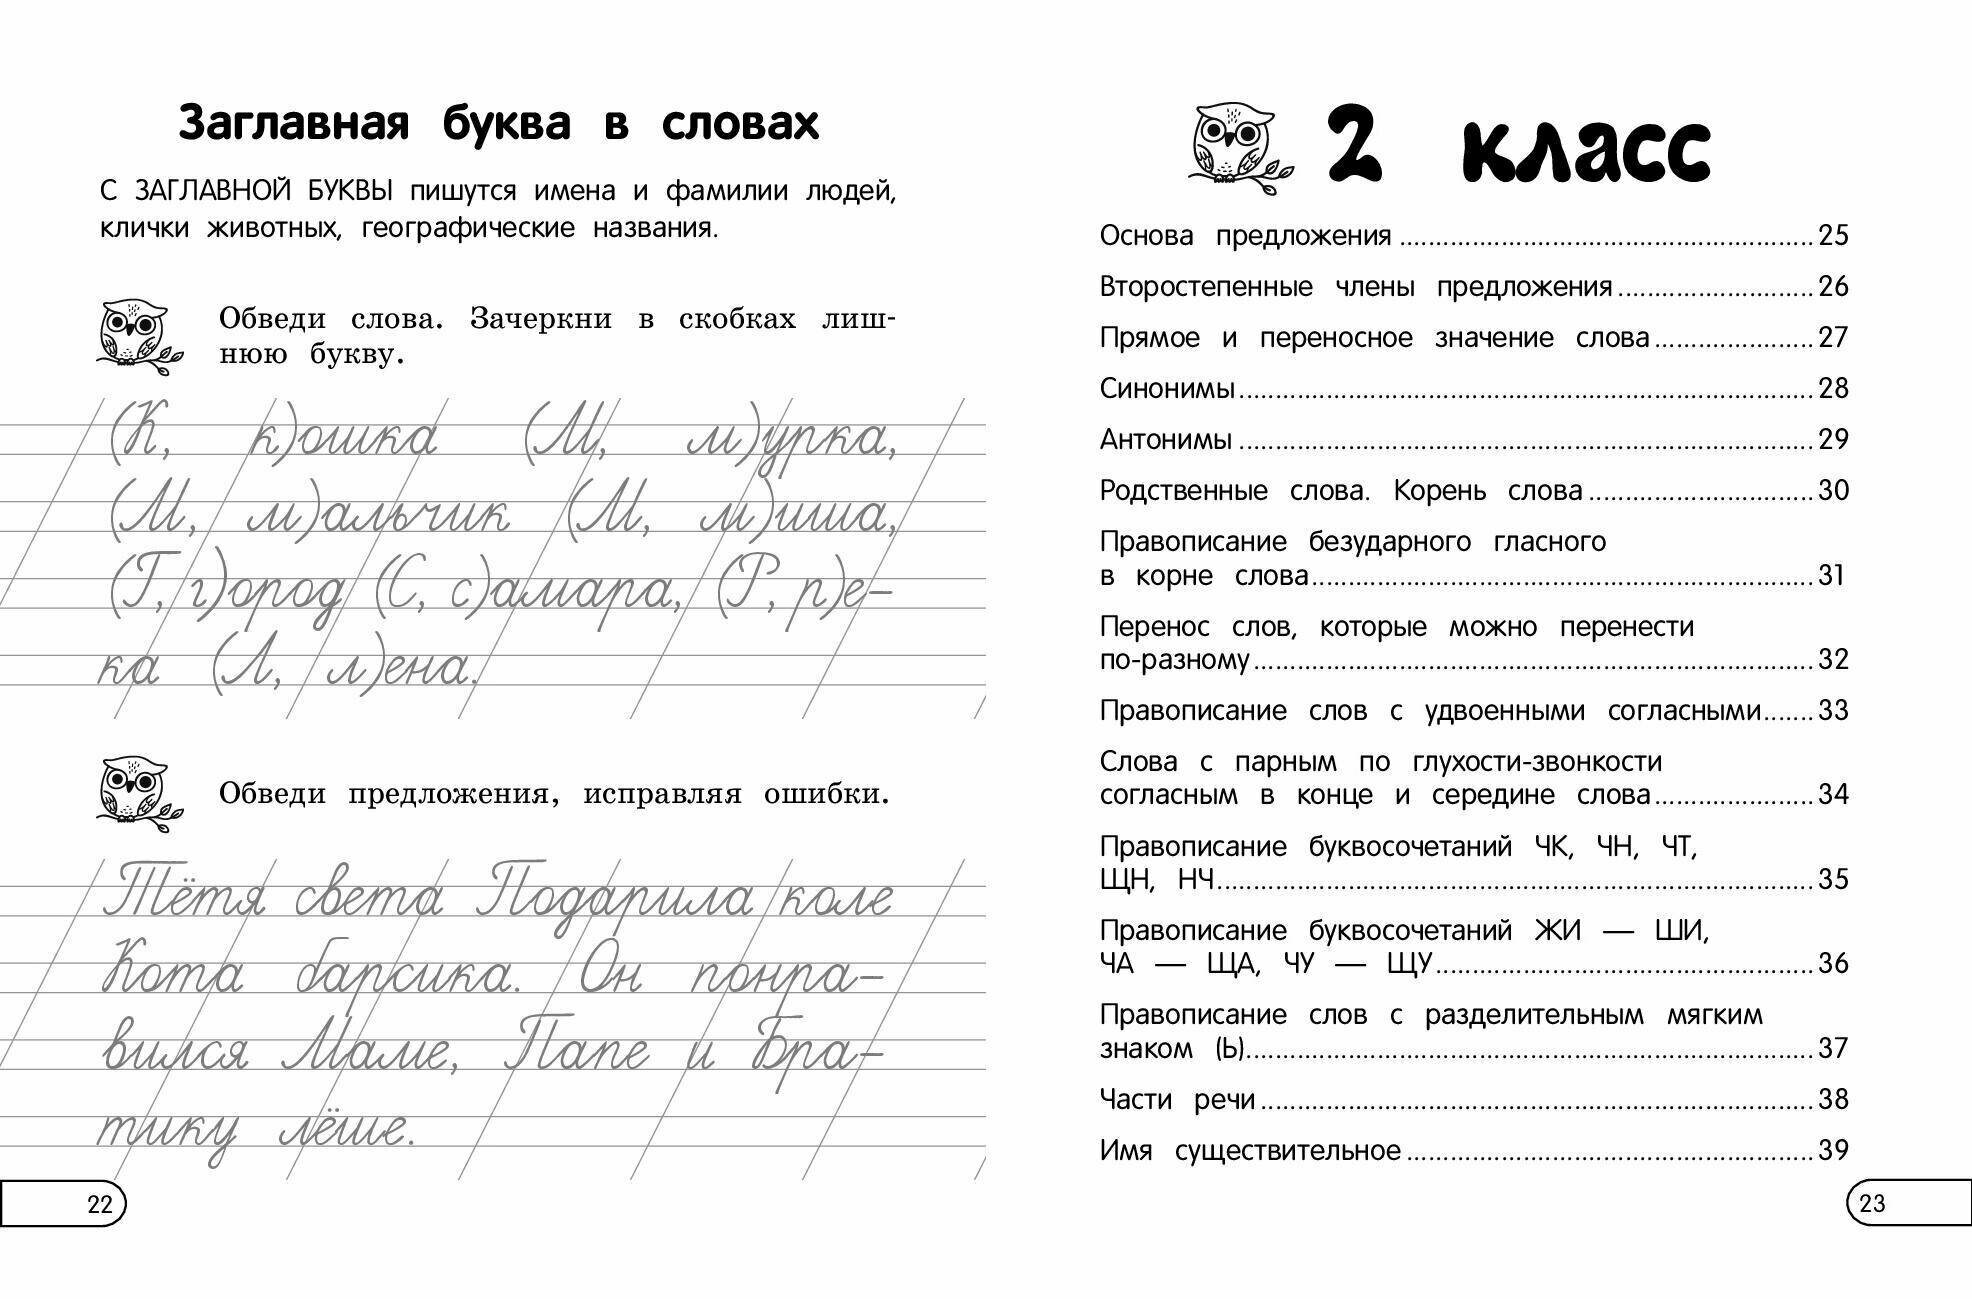 Заглавная буква в словах
С ЗАГЛАВНОЙ БУКВЫ пишутся имена и фамилии людей,
клички животных, географические названия.
Обведи слова. Зачеркни в скобках лиш-
нюю букву.
(К, к)ошка (М, м)урка,
(М, м)альчик (М, м)иша,
(Г, г)ород (С, с)амара, (Р, р)е-
ка (Л, л)ена.
Обведи предложения, исправляя ошибки.
Тётя света Подарила коле
Кота барсика. Он понра-
вился Маме, Папе и Бра-
тику лёше.
22
2 класс
Основа предложения ........................ 25
Второстепенные члены предложения ........................ 26
Прямое и переносное значение слова ........................ 27
Синонимы ........................ 28
Антонимы ........................ 29
Родственные слова. Корень слова ........................ 30
Правописание безударного гласного
в корне слова ........................ 31
Перенос слов, которые можно перенести
по-разному ........................ 32
Правописание слов с удвоенными согласными ....... 33
Слова с парным по глухости-звонкости
согласным в конце и середине слова ........................ 34
Правописание буквосочетаний ЧК, ЧН, ЧТ,
ЩН, НЧ ........................ 35
Правописание буквосочетаний ЖИ — ШИ,
ЧА — ЩА, ЧУ — ЩУ ........................ 36
Правописание слов с разделительным мягким
знаком (Ь) ........................ 37
Части речи ........................ 38
Имя существительное ........................ 39
23